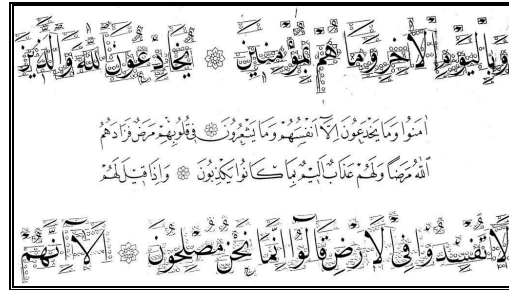 وَبِالْيَوْمِ الْآخِرِ وَمَا هُمْ بِمُؤْمِنِينَ ۞ يُخَادِعُونَ اللهَ وَالَّذِينَ
اٰمَنُوا وَمَا يَخْدَعُونَ اِلَّٓا اَنْفُسَهُمْ وَمَا يَشْعُرُونَ ۞ فِى قُلُوبِهِمْ مَرَضٌ فَزَادَهُمُ
اللهُ مَرَضًا وَلَهُمْ عَذَابٌ اَلِيمٌ بِمَا كَانُوا يَكْذِبُونَ ۞ وَاِذَا قِيلَ لَهُمْ
لَا تُفْسِدُوا فِى الْاَرْضِ قَالُٓوا اِنَّمَا نَحْنُ مُصْلِحُونَ ۞ اَلَٓا اِنَّهُمْ